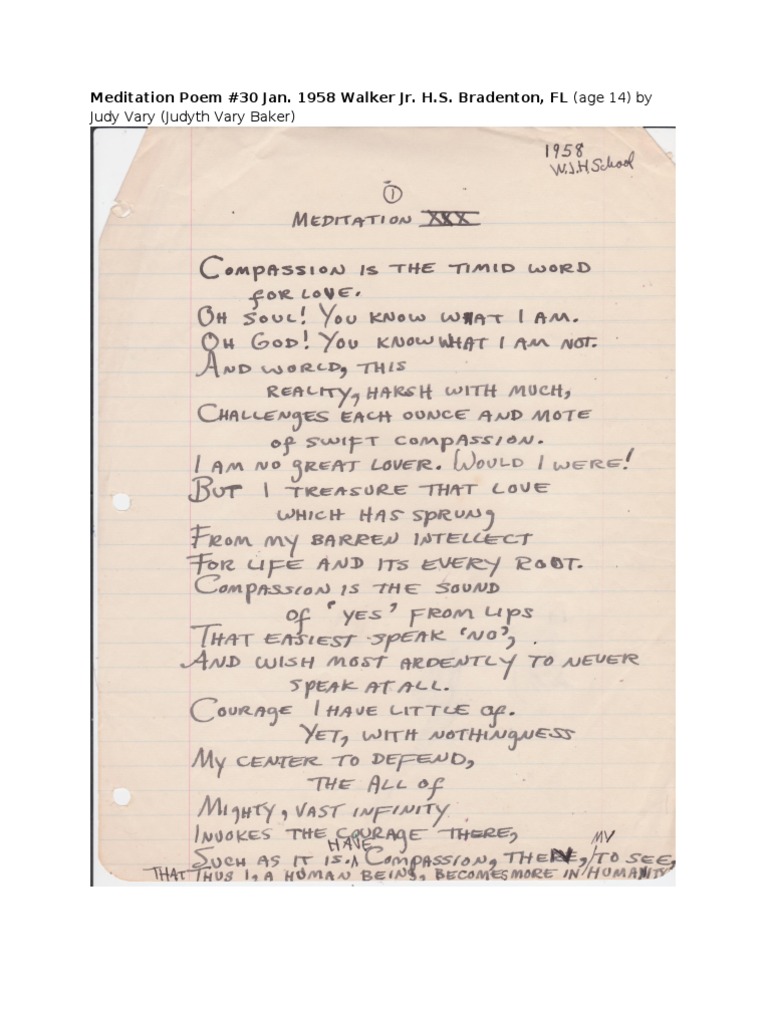 Meditation Poem #30 Jan. 1958 Walker Jr. H.S. Bradenton, FL (age 14) by
Judy Vary (Judyth Vary Baker)
1958
W.J.H School
1
MEDITATION XXX
COMPASSION IS THE TIMID WORD
FOR LOVE.
OH SOUL! YOU KNOW WHAT I AM.
OH GOD! YOU KNOW WHAT I AM NOT.
AND WORLD, THIS
REALITY, HARSH WITH MUCH,
CHALLENGES EACH OUNCE AND MOTE
OF SWIFT COMPASSION.
I AM NO GREAT LOVER. WOULD I WERE!
BUT I TREASURE THAT LOVE
WHICH HAS SPRUNG
FROM MY BARREN INTELLECT
FOR LIFE AND ITS EVERY ROOT.
COMPASSION IS THE SOUND
OF 'YES' FROM LIPS
THAT EASIEST SPEAK 'NO',
AND WISH MOST ARDENTLY TO NEVER
SPEAK AT ALL.
COURAGE I HAVE LITTLE OF.
YET, WITH NOTHINGNESS
MY CENTER TO DEFEND,
THE ALL OF
MIGHTY, VAST INFINITY
INVOKES THE COURAGE THERE,
HAVE MY
SUCH AS IT IS. COMPASSION, THEN, TO SEE,
THAT THUS I, A HUMAN BEING, BECOMES MORE IN HUMANITY